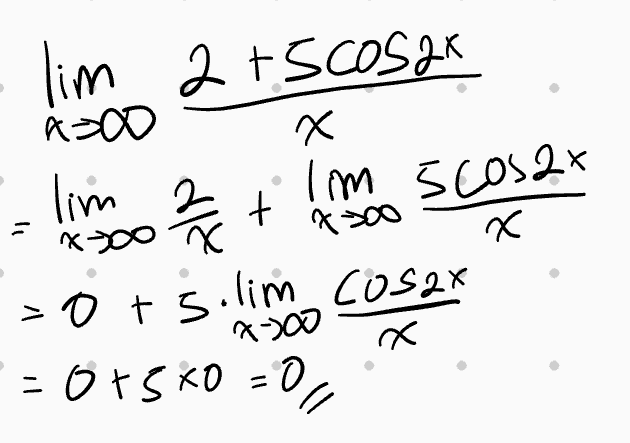 lim x→∞ (2 + 5cos2x)/x
= lim x→∞ 2/x + lim x→∞ (5cos2x)/x
= 0 + 5·lim x→∞ (cos2x)/x
= 0 + 5×0 = 0